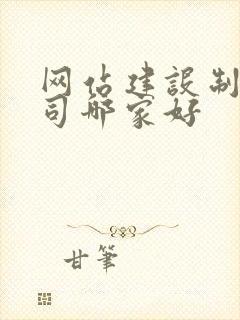 网站建設制
司那家好
甘筆